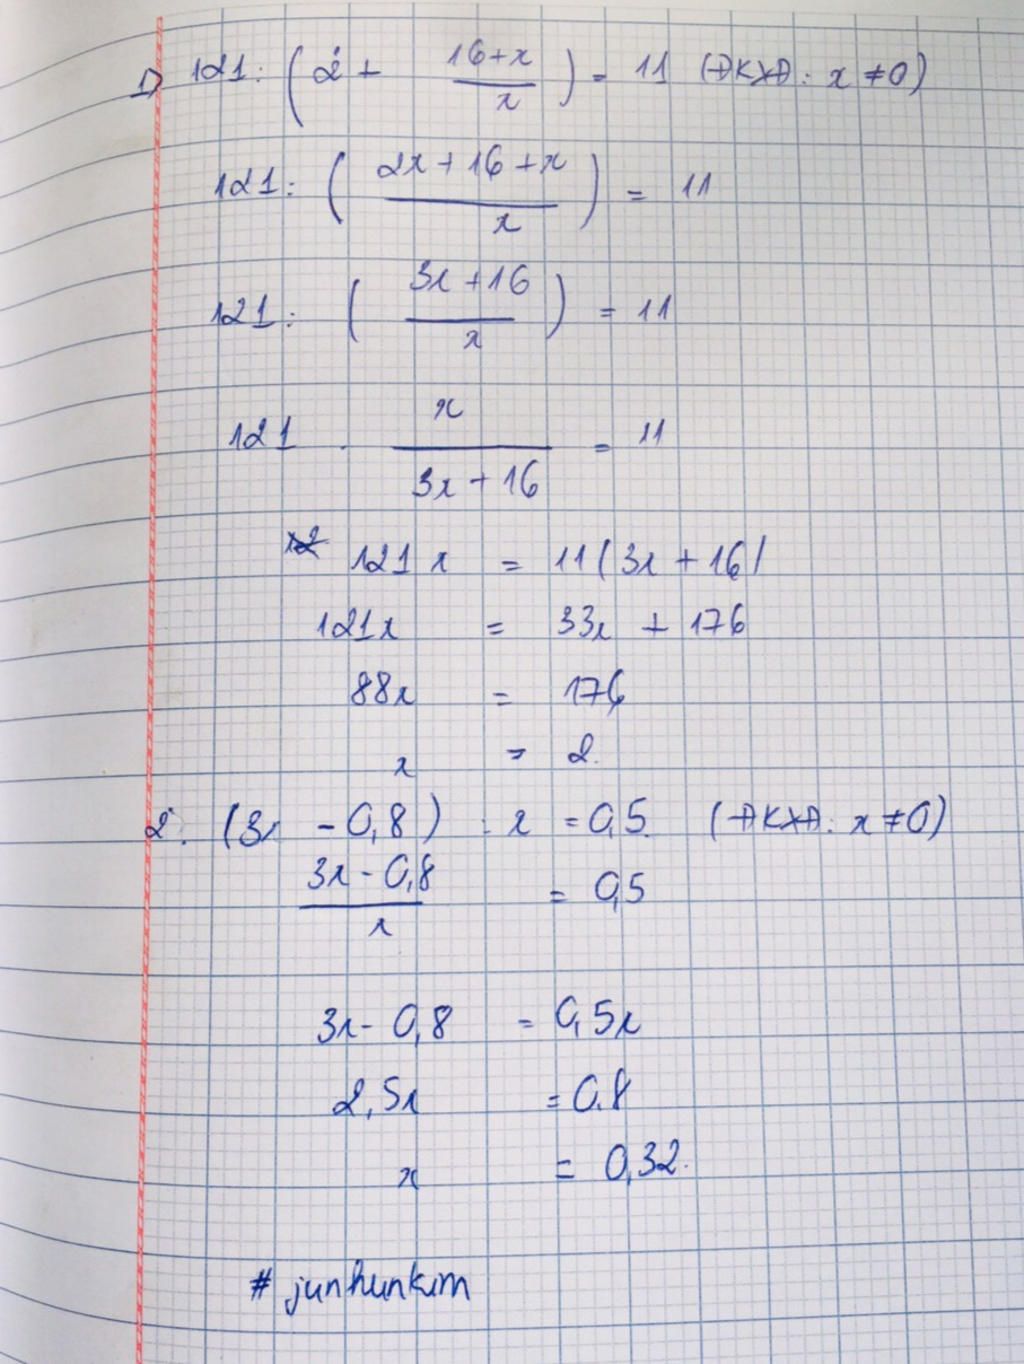 1) 121 : (2 + 16+x / x) = 11 (ĐKXĐ : x ≠ 0)
121 : (2x + 16 + x / x) = 11
121 : (3x + 16 / x) = 11
121 . x / 3x + 16 = 11
121x = 11(3x + 16)
121x = 33x + 176
88x = 176
x = 2.
2. (3x - 0,8) : x = 0,5. (ĐKXĐ : x ≠ 0)
3x - 0,8 / x = 0,5
3x - 0,8 = 0,5x
2,5x = 0.8
x = 0,32.
# junhunkim